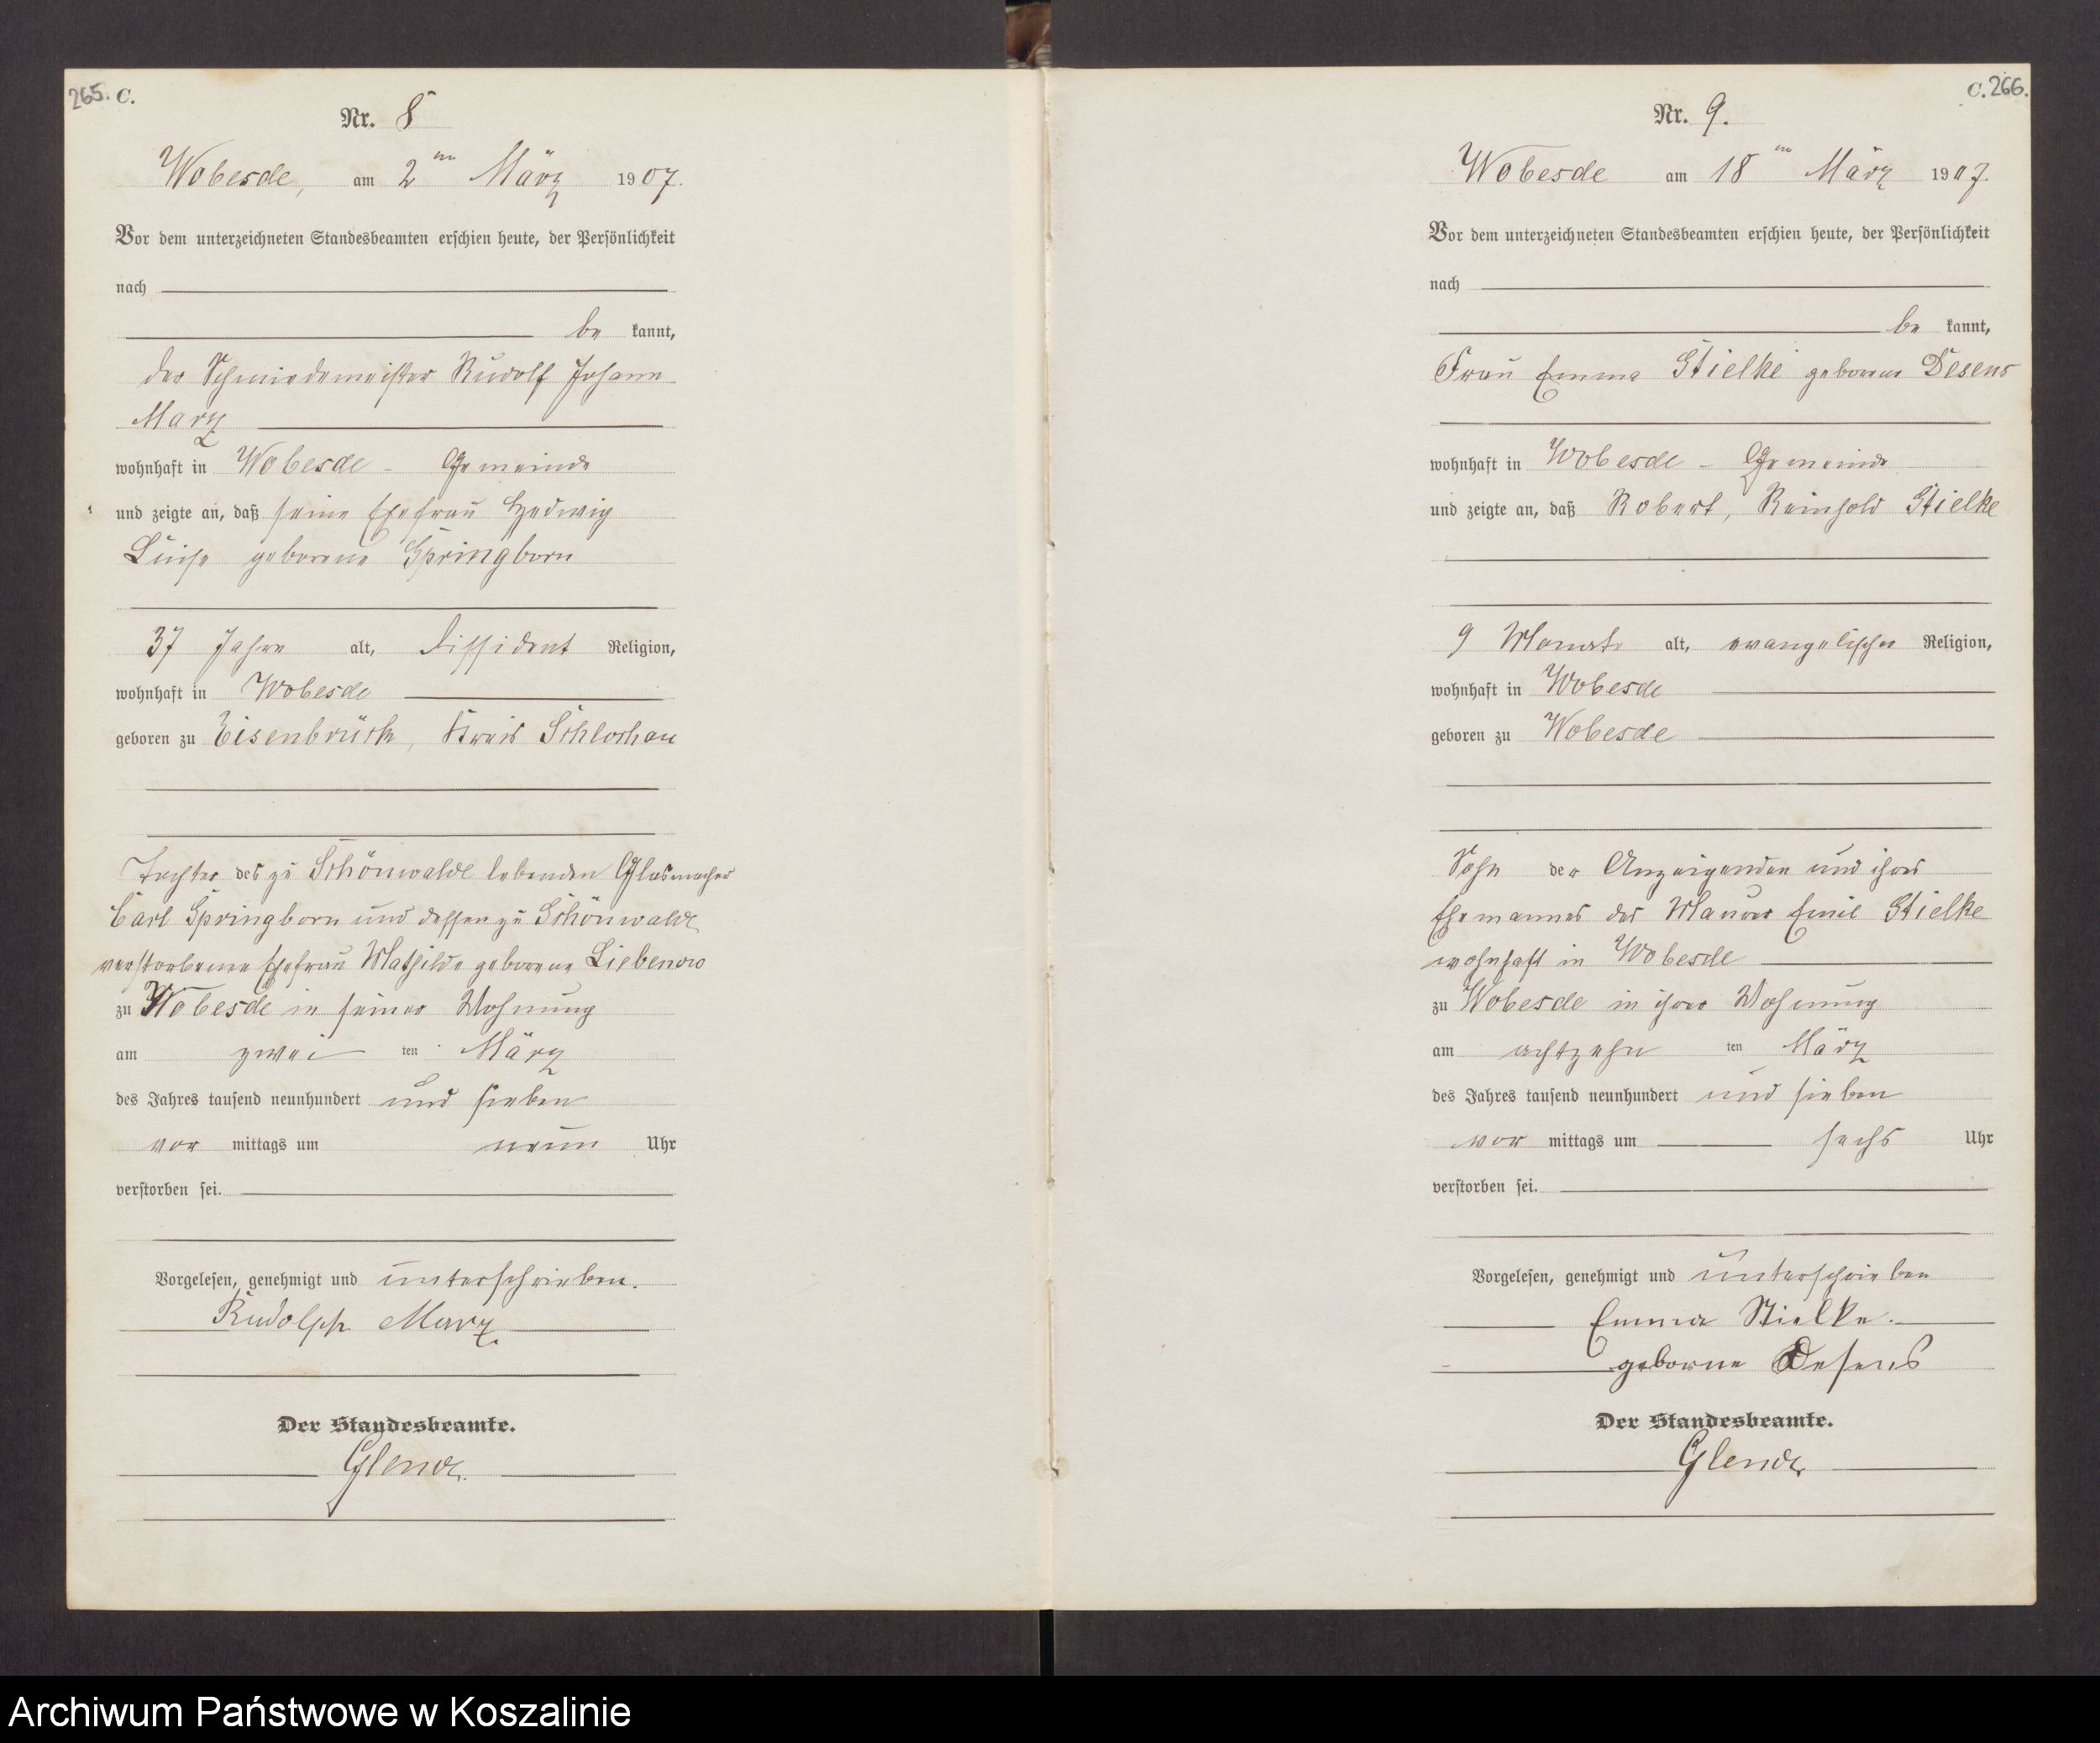 265. C.
Nr. 8
Wobesde, am 2ten März 1907.
Vor dem unterzeichneten Standesbeamten erschien heute, der Persönlichkeit
nach
be kannt,
der Schmiedemeister Rudolf Johann
Marz
wohnhaft in Wobesde - Gemeinde
und zeigte an, daß seine Ehefrau Hedwig
Luise geborene Springborn
37 Jahre alt, Dissident Religion,
wohnhaft in Wobesde
geboren zu Eisenbrück, Kreis Schlochau
Tochter des zu Schönwalde lebenden Glasmacher
Carl Springborn und dessen zu Schönwalde
verstorbenen Ehefrau Mathilde geborene Liebenow
zu Wobesde in seiner Wohnung
am zwei ten März
des Jahres tausend neunhundert und sieben
vor mittags um neun Uhr
verstorben sei.
Vorgelesen, genehmigt und unterschrieben.
Rudolph Marz
Der Standesbeamte.
C. 266.
Nr. 9.
Wobesde am 18ten März 1907.
Vor dem unterzeichneten Standesbeamten erschien heute, der Persönlichkeit
nach
be kannt,
Frau Emma Stielke geborene Desens
wohnhaft in Wobesde - Gemeinde
und zeigte an, daß Robert, Reinhold Stielke
9 Monate alt, evangelischer Religion,
wohnhaft in Wobesde
geboren zu Wobesde
Sohn der Anzeigenden und ihres
Ehemannes des Maurer Emil Stielke
wohnhaft in Wobesde
zu Wobesde in ihrer Wohnung
am achtzehn ten März
des Jahres tausend neunhundert und sieben
vor mittags um sechs Uhr
verstorben sei.
Vorgelesen, genehmigt und unterschrieben
Emma Stielke.
geborne Desens
Der Standesbeamte.
Archiwum Państwowe w Koszalinie